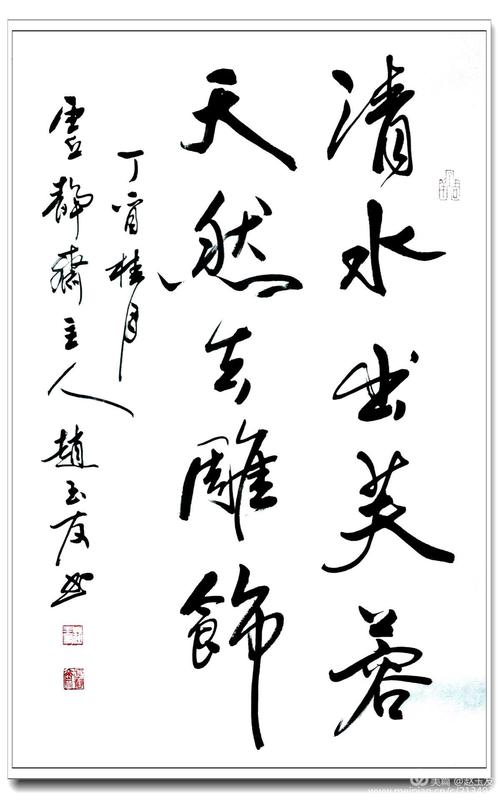 清水出芙蓉
天然去雕飾
丁酉桂月
虚靜齋主人趙玉友书
美篇 @赵玉友